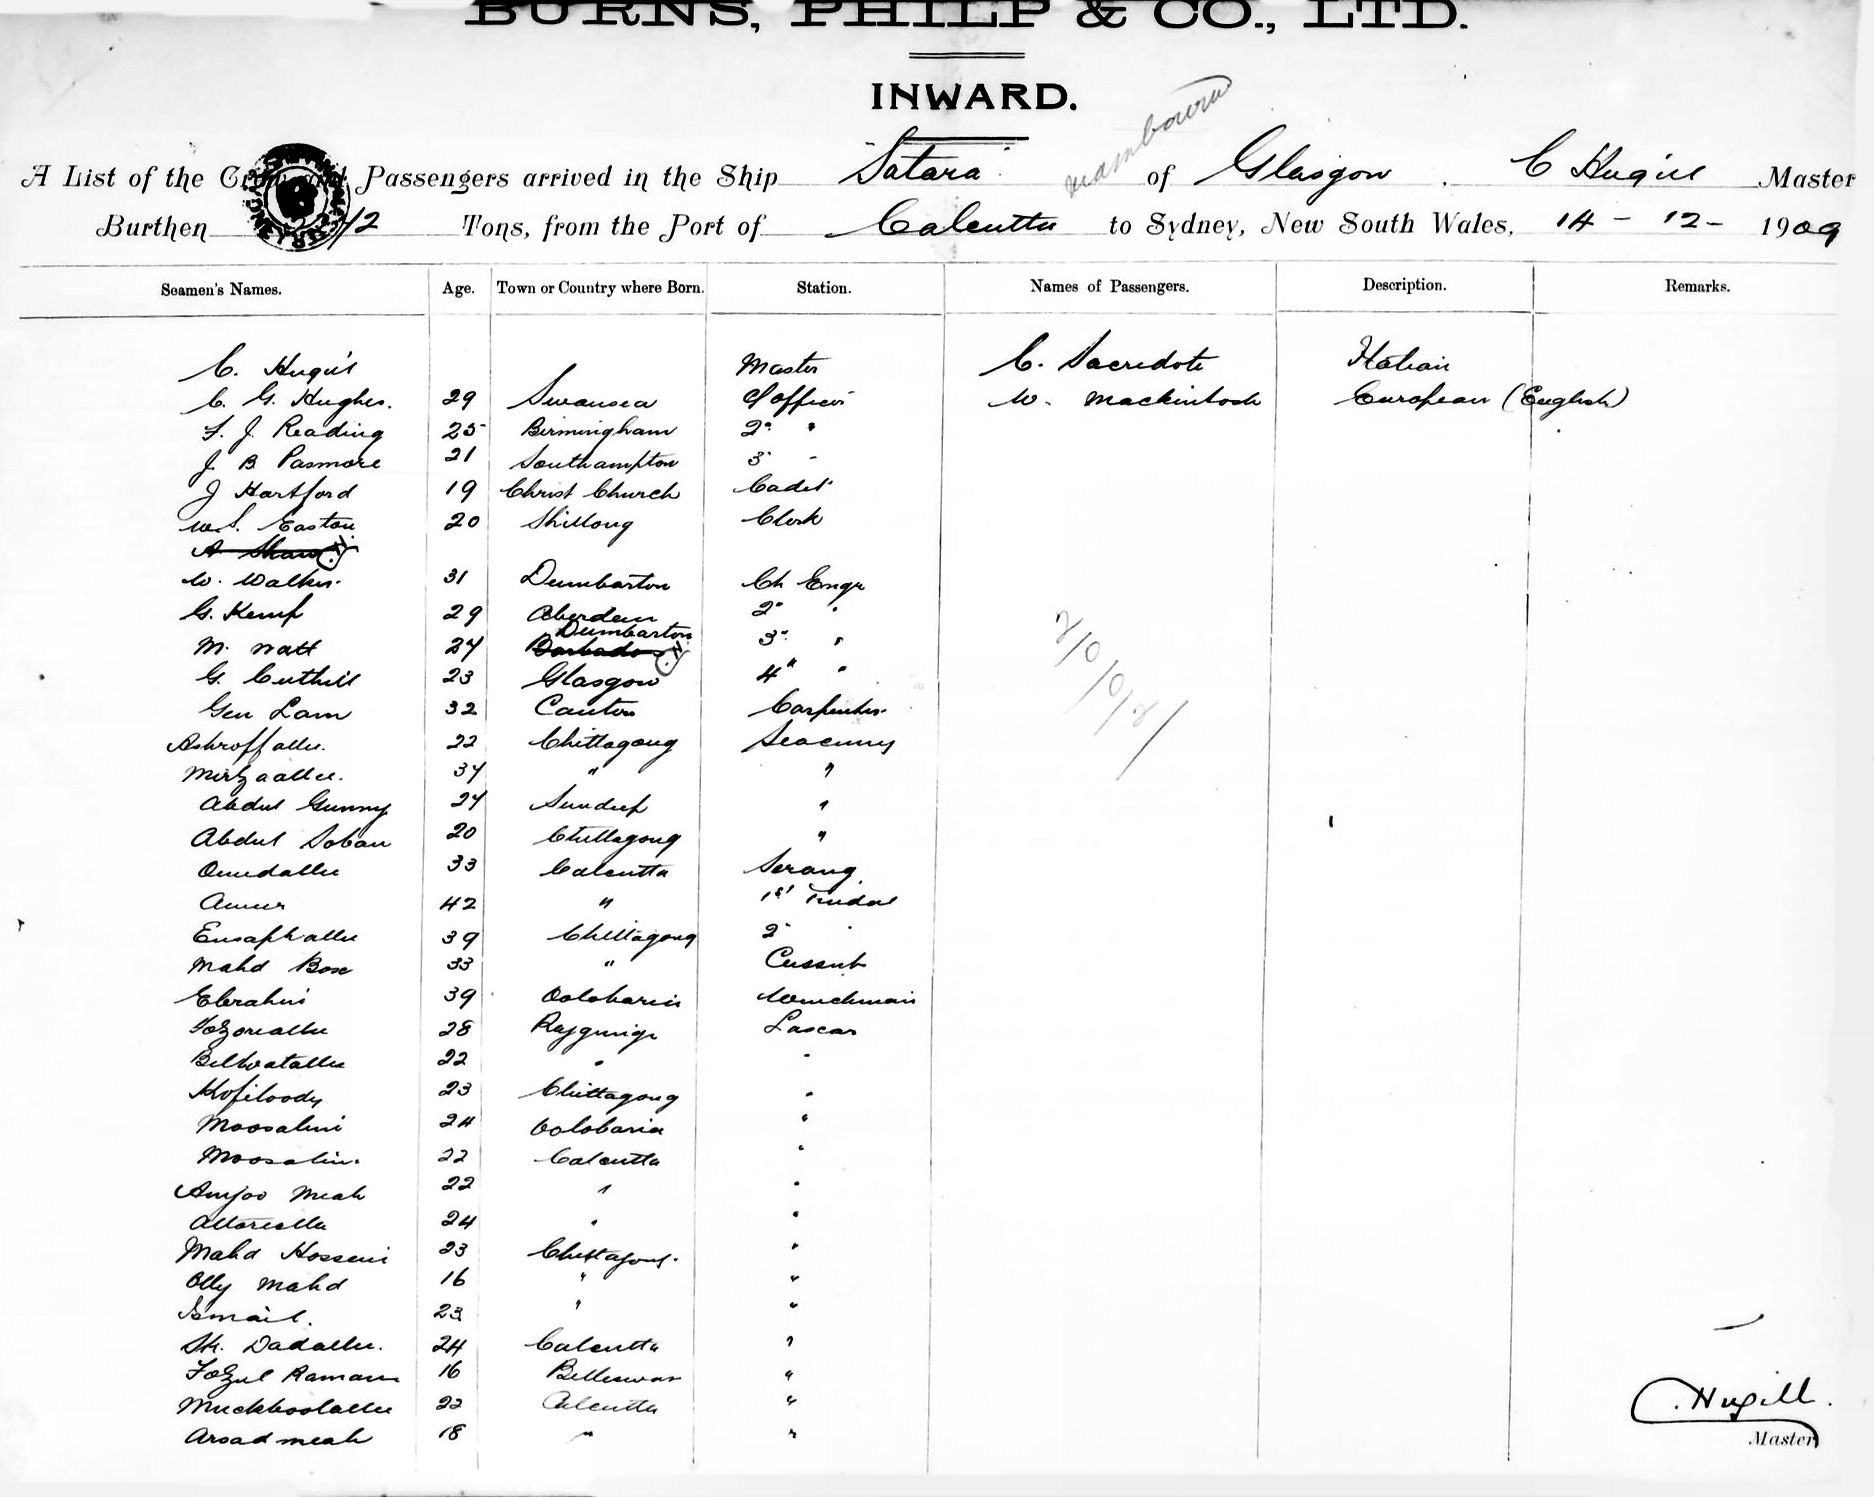 BURNS, PHILP & CO., LTD.
INWARD.
A List of the Crew and Passengers arrived in the Ship "Satara" of Glasgow. C Hugill Master
Burthen Tons, from the Port of Calcutta to Sydney, New South Wales, 14 - 12 - 1909
Seamen's Names. Age. Town or Country where Born. Station. Names of Passengers. Description. Remarks.
C. Hugill Master C. Sacredote Italian
C. G. Hughes. 29 Swansea C/ officer W. Mackintosh European (English)
F. J. Reading 25 Birmingham 2" "
J. B Pasmore 21 Southampton 3" "
J Hartford 19 Christ Church Cadet
W. S. Easton 20 Shillong Clerk
A Shaw
W. Walker. 31 Dumbarton Ch Engr
G. Kemp 29 Aberdeen 2" "
Dumbarton
M. Watt 24 Barbados 3" "
G. Cuthill 23 Glasgow 4" "
Gen Lam 32 Canton Carpenter
Ashroffallee. 22 Chittagong Seacunny
Mirzaallee. 34 " "
Abdul Gunny 24 Sundeep "
Abdul Soban 20 Chittagong "
Omedallee 33 Calcutta Serang
Ameer 42 " 1st Tindal
Ensaphallee 39 Chittagong 2" "
Mahd Box 33 " Cussub
Ebrahim 39 Oolobaria Winchman
Fozoreallee 28 Raygunge Lascar
22 " "
23 Chittagong "
24 Oolobaria "
22 Calcutta "
Amjoo Meah 22 " "
24 " "
Mahd Hossein 23 Chittagong. "
Olly Mahd 16 " "
Ismail. 23 " "
Sk. Dadallee. 24 Calcutta "
Fozul Raman 16 "
Muckboolallee 22 Calcutta "
Arsad meah 18 " "
C. Hugill.
Master